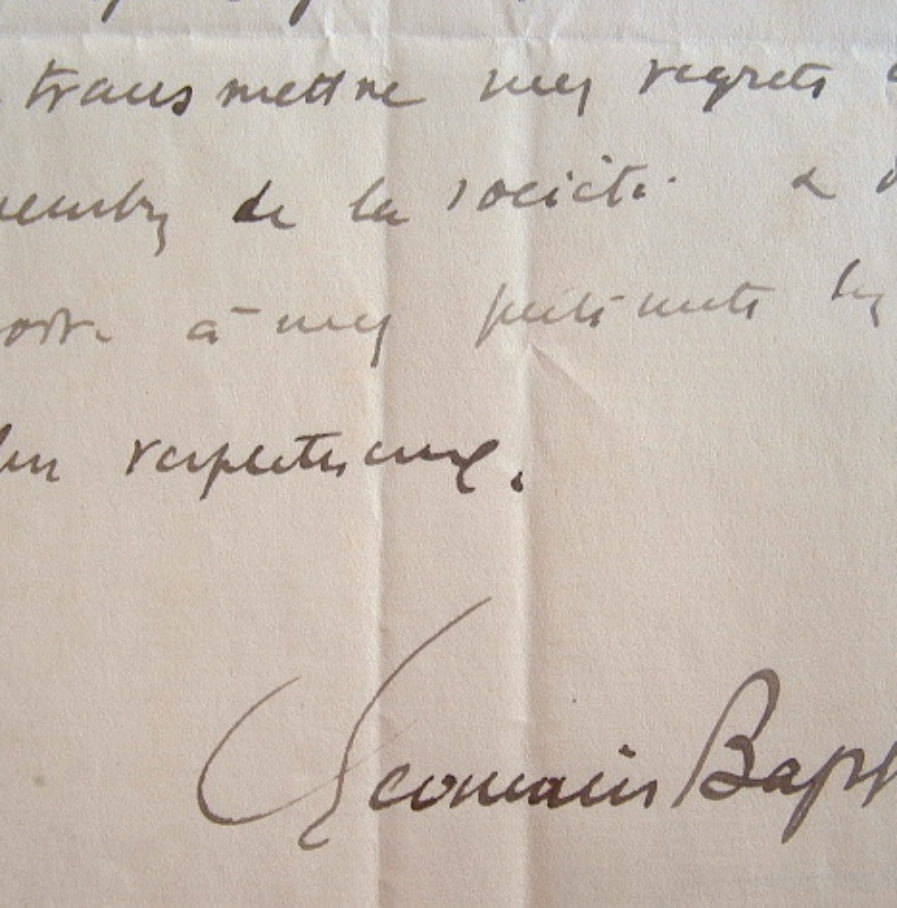 transmettre mes regrets
membres de la société. &
à mes sentiments les
respectueux.
Germain Bap